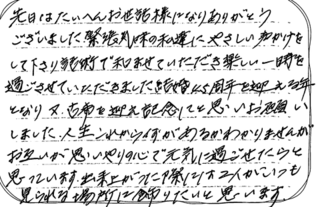 先日はたいへんお世話様になりありがとう
ございました緊張気味の私達にやさしい声かけを
して下さり話術で和ませていただき楽しい一時を
過ごさせていただきました結婚45周年を迎える年
となり又、古希を迎え記念にと思いお願い
しました、人生これから何があるかわかりませんが
お互いが思いやりの心で元気に過ごせたらと
思っています出来上がった際には二人がいつも
見られる場所に飾りたいと思います